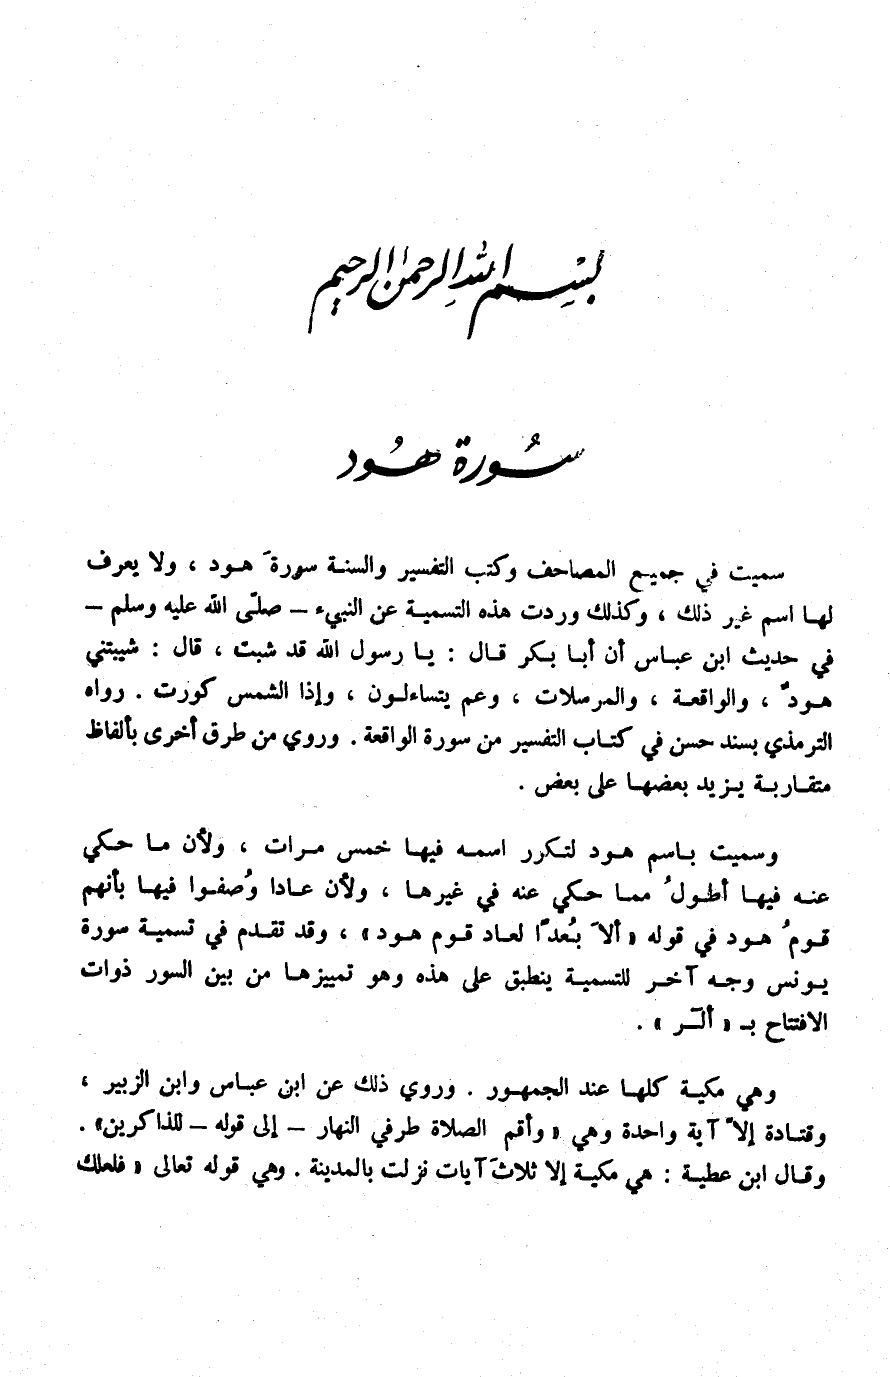 بسم الله الرحمن الرحيم
سورة هود
سميت في جميع المصاحف وكتب التفسير والسنة سورةَ هود ، ولا يعرف
لها اسم غير ذلك ، وكذلك وردت هذه التسمية عن النبيء – صلّى الله عليه وسلم –
في حديث ابن عباس أن أبا بكر قال : يا رسول الله قد شبت ، قال : شيبتني
هودٌ ، والواقعة ، والمرسلات ، وعم يتساءلون ، وإذا الشمس كورت . رواه
الترمذي بسند حسن في كتاب التفسير من سورة الواقعة . وروي من طرق أخرى بألفاظ
متقاربة يزيد بعضها على بعض .
وسميت باسم هود لتكرر اسمه فيها خمس مرات ، ولأن ما حكي
عنه فيها أطولُ مما حكي عنه في غيرها ، ولأن عادا وُصفوا فيها بأنهم
قومُ هود في قوله « ألاَ بُعدًا لعاد قوم هود » ، وقد تقدم في تسمية سورة
يونس وجه آخر للتسمية ينطبق على هذه وهو تمييزها من بين السور ذوات
الافتتاح بـ « ألٓر » .
وهي مكية كلها عند الجمهور . وروي ذلك عن ابن عباس وابن الزبير ،
وقتادة إلاّ آية واحدة وهي « وأقم الصلاة طرفي النهار – إلى قوله – للذاكرين» .
وقال ابن عطية : هي مكية إلا ثلاثَ آيات نزلت بالمدينة . وهي قوله تعالى « فلعلك